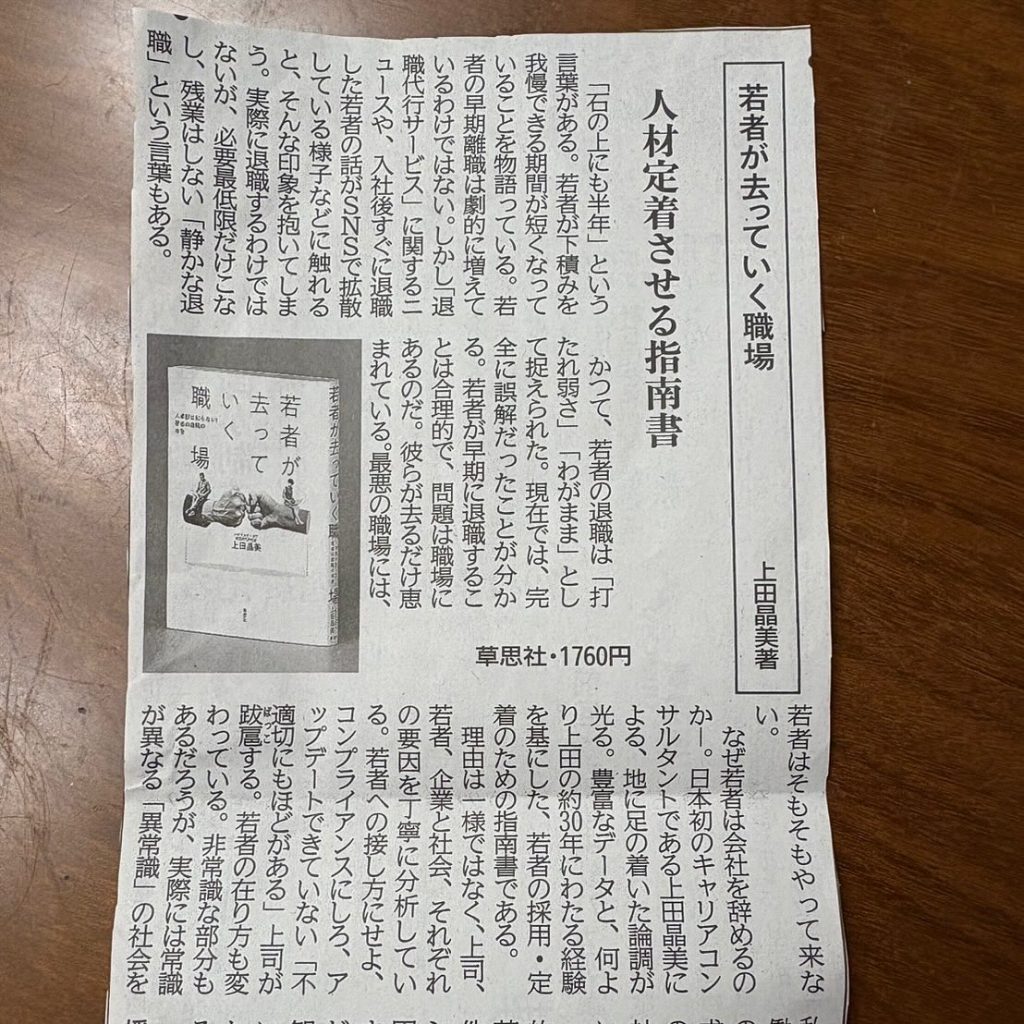 若者が去っていく職場
上田晶美著
人材定着させる指南書
「石の上にも半年」という
言葉がある。若者が下積みを
我慢できる期間が短くなって
いることを物語っている。若
者の早期離職は劇的に増えて
いるわけではない。しかし「退
職代行サービス」に関するニ
ュースや、入社後すぐに退職
した若者の話がSNSで拡散
している様子などに触れる
と、そんな印象を抱いてしま
う。実際に退職するわけでは
ないが、必要最低限だけこな
し、残業はしない「静かな退
職」という言葉もある。
かつて、若者の退職は「打
たれ弱さ」「わがまま」とし
て捉えられた。現在では、完
全に誤解だったことが分か
る。若者が早期に退職するこ
とは合理的で、問題は職場に
あるのだ。彼らが去るだけ恵
まれている。最悪の職場には、
若者が
去って
いく
職場
上田晶美
若者が去っていく職場
草思社・1760円
若者はそもそもやって来な
い。
なぜ若者は会社を辞めるの
かー。日本初のキャリアコン
サルタントである上田晶美に
よる、地に足の着いた論調が
光る。豊富なデータと、何よ
り上田の約30年にわたる経験
を基にした、若者の採用・定
着のための指南書である。
理由は一様ではなく、上司、
若者、企業と社会、それぞれ
の要因を丁寧に分析してい
る。若者への接し方にせよ、
コンプライアンスにしろ、ア
ップデートできていない「不
適切にもほどがある」上司が
跋扈する。若者の在り方も変
ばっこ
わっている。非常識な部分も
あるだろうが、実際には常識
が異なる「異常識」の社会を